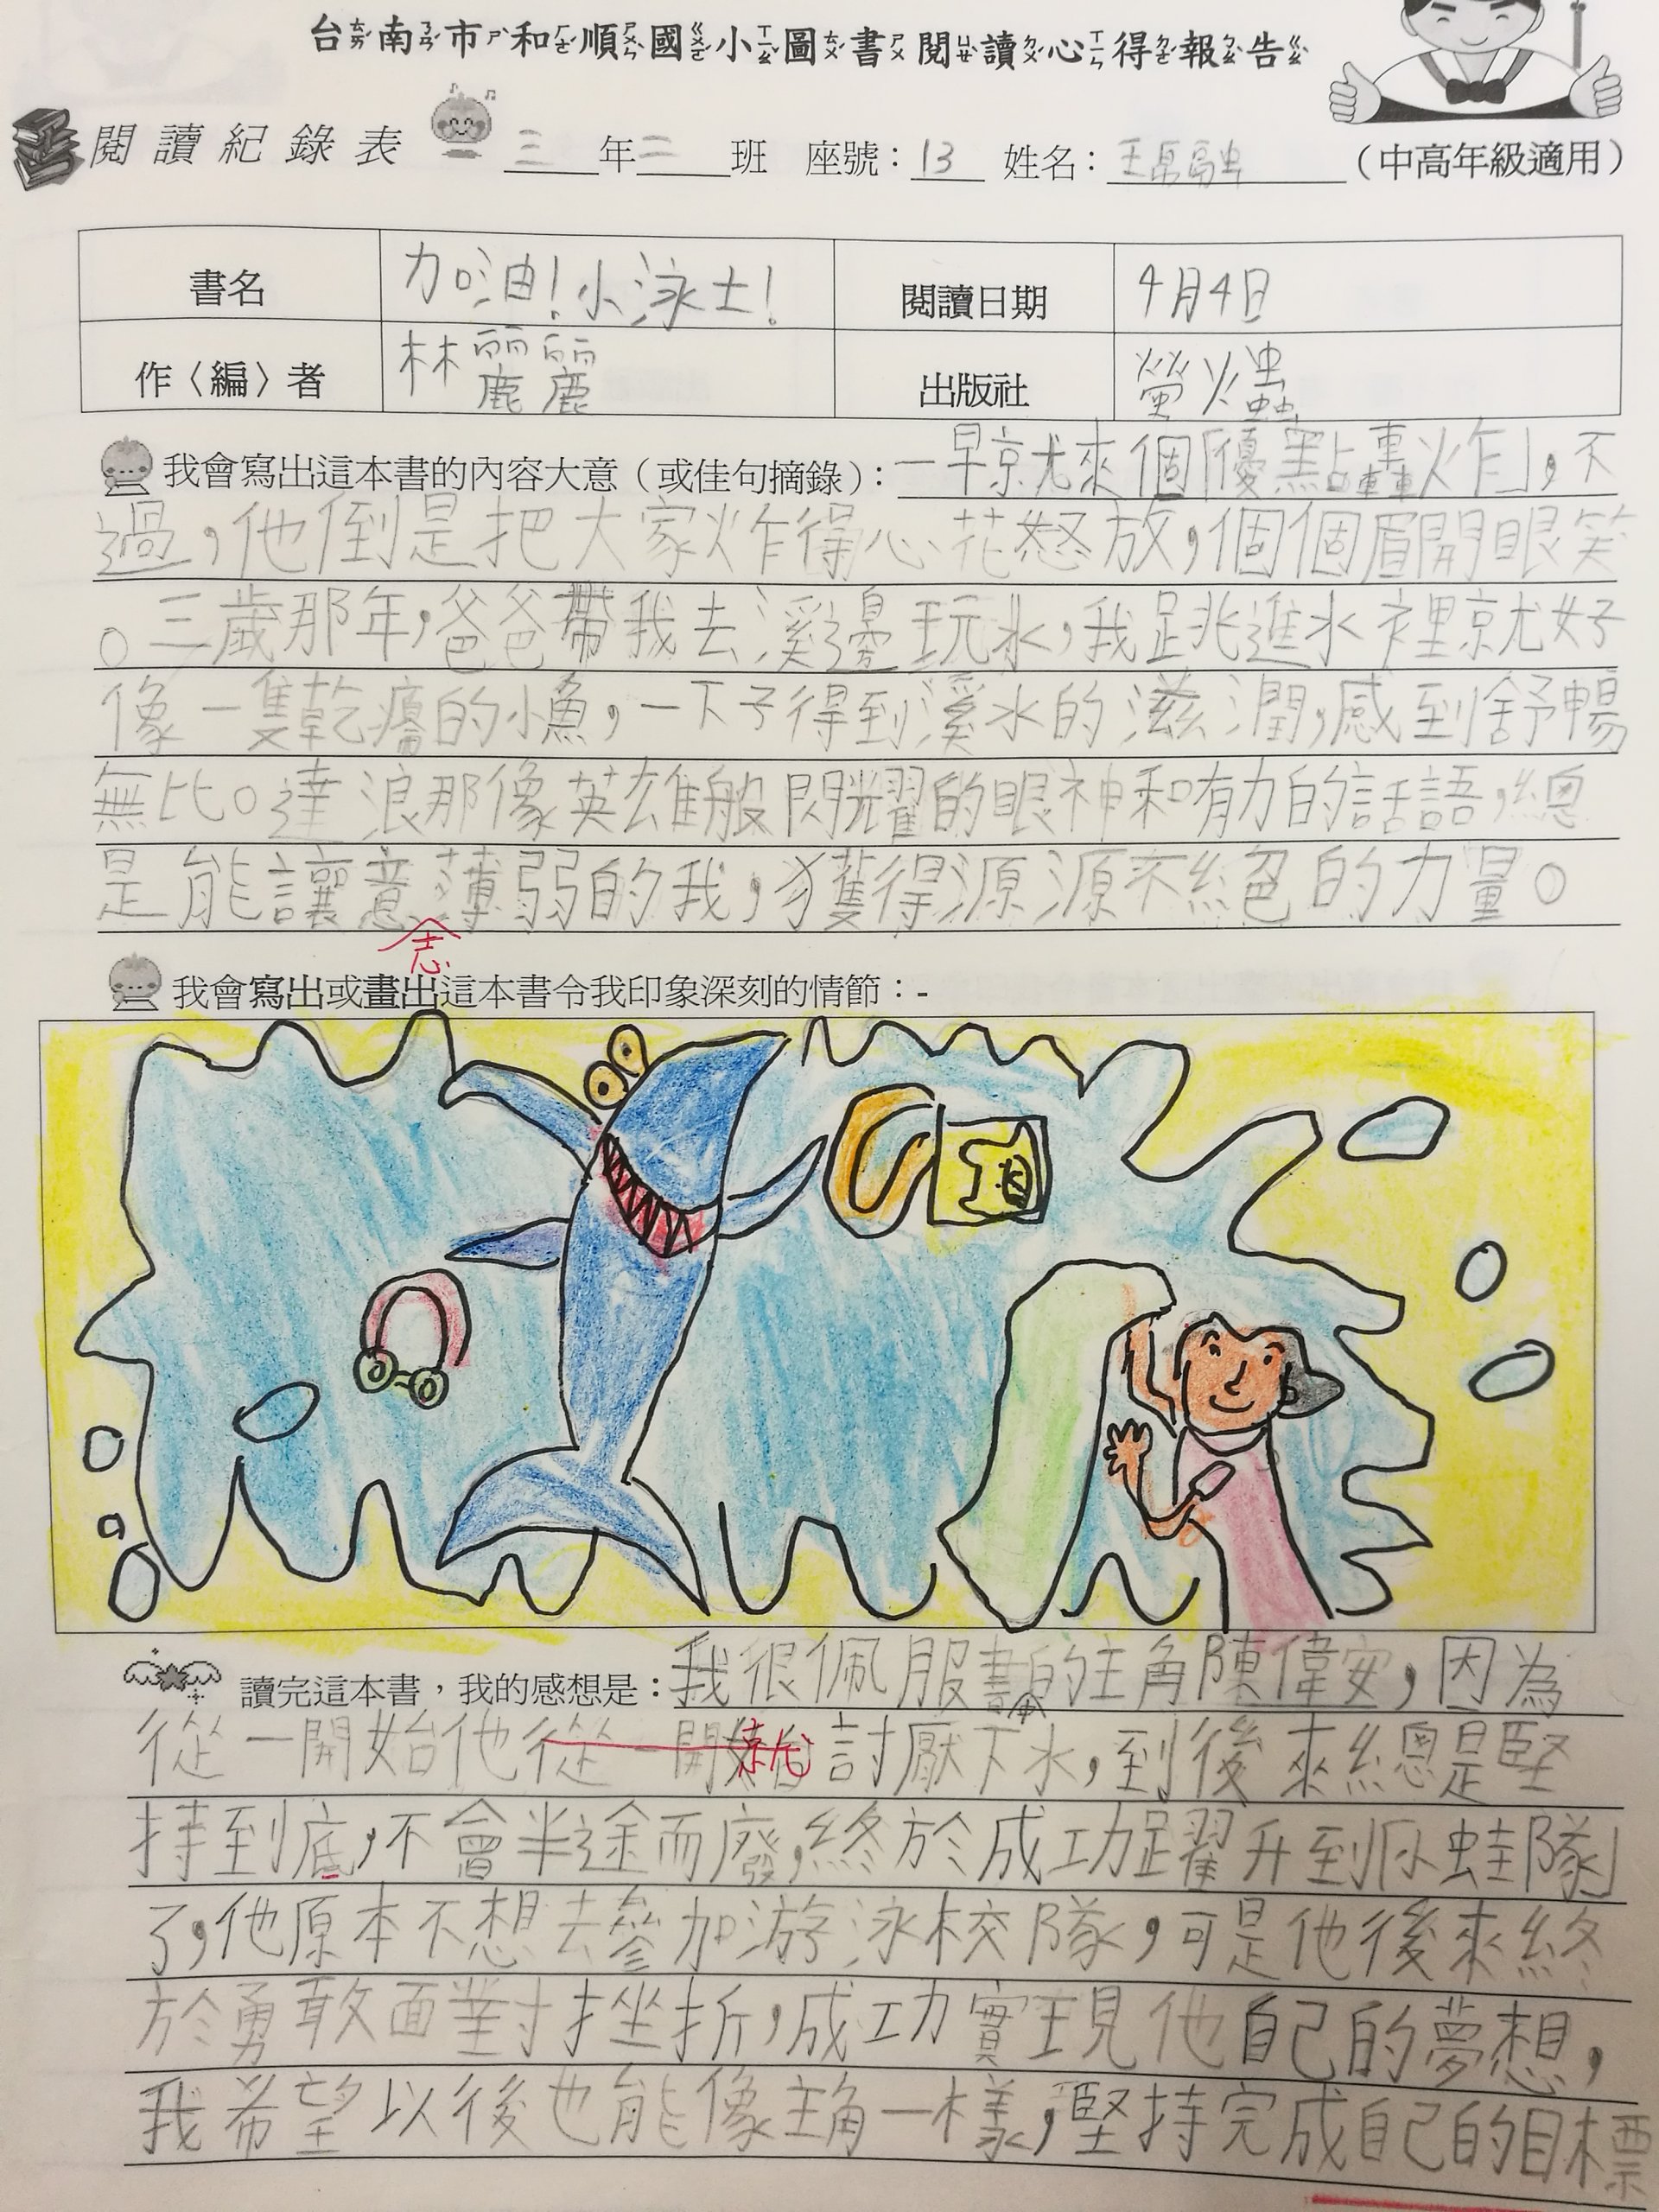 台南市和順國小圖書閱讀心得報告
閱讀紀錄表 三年二班 座號：13 姓名：王 （中高年級適用）
書名 加油！小泳士！ 閱讀日期 4月4日
作〈編〉者 林麗麗 出版社 螢火蟲
我會寫出這本書的內容大意（或佳句摘錄）：一早就來個「優點轟炸」，不
過，他倒是把大家炸得心花怒放，個個眉開眼笑
。三歲那年，爸爸帶我去溪邊玩水，我跳進水裡就好
像一隻乾癟的小魚，一下子得到溪水的滋潤，感到舒暢
無比。達浪那像英雄般閃耀的眼神和有力的話語，總
是能讓意薄弱的我，獲得源源不絕的力量。
志
我會寫出或畫出這本書令我印象深刻的情節：-
讀完這本書，我的感想是：我很佩服書本的主角陳偉安，因為
從一開始他從一開始就討厭下水，到後來總是堅
持到底，不會半途而廢，終於成功躍升到「小蛙隊」
了，他原本不想去參加游泳校隊，可是他後來終
於勇敢面對挫折，成功實現他自己的夢想，
我希望以後也能像主角一樣，堅持完成自己的目標